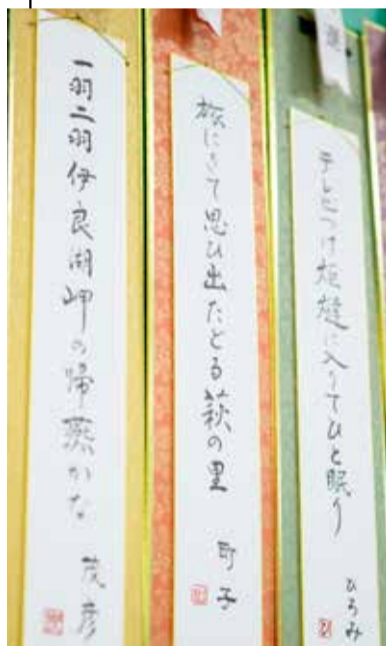 テレビつけ炬燵に入りてひと眠り
ひろみ
旅にきて思ひ出たどる萩の里
町子
一羽二羽伊良湖岬の帰燕かな
茂彦